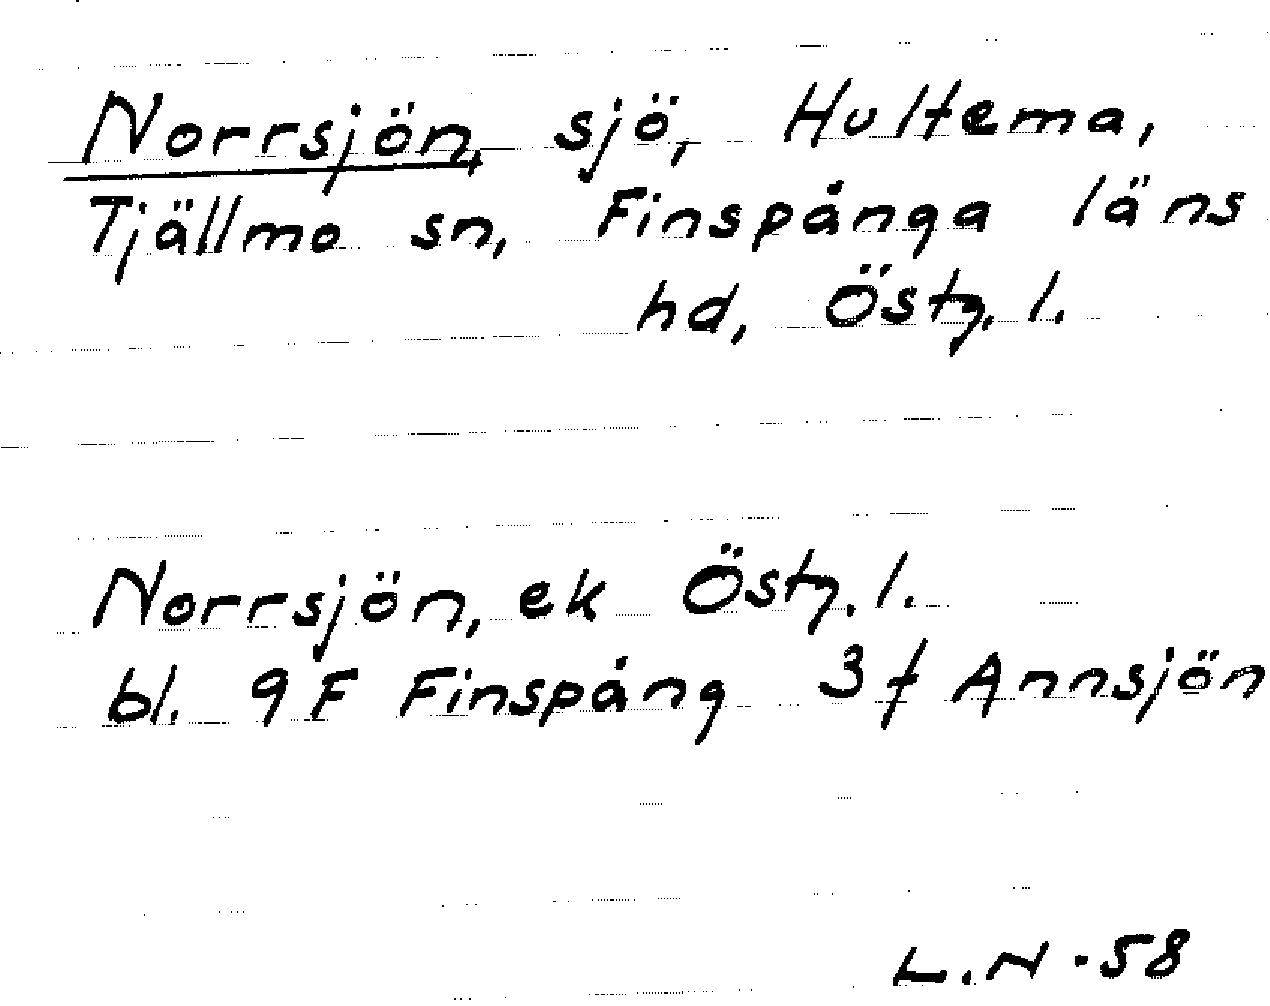 Norrsjön, sjö, Hultema,
Tjällmo sn, Finspånga läns
hd, Östg. l.
Norrsjön, ek Östg. l.
bl. 9F Finspång 3f Annsjön
L.N -58